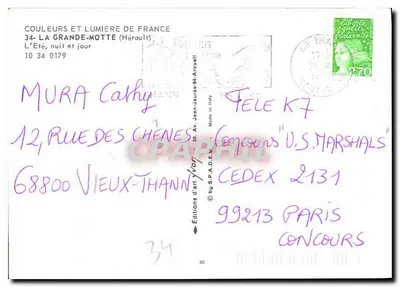 COULEURS ET LUMIERE DE FRANCE
34- LA GRANDE-MOTTE (Hérault)
L'Eté, nuit et jour
10 34 0179
MURA Cathy
12, RUE DES CHÊNES
68800 VIEUX-THANN
34
Editions d'art yvon
Av. Jean-Jaurès 94-Arcueil
Made in Italy
© by S.P.A.D.E.M.
THANN
Liberté
égalité
fraternité
2,70
TELE K7
CONCOURS "U.S. MARSHALS"
CEDEX 2131
99213 PARIS
CONCOURS